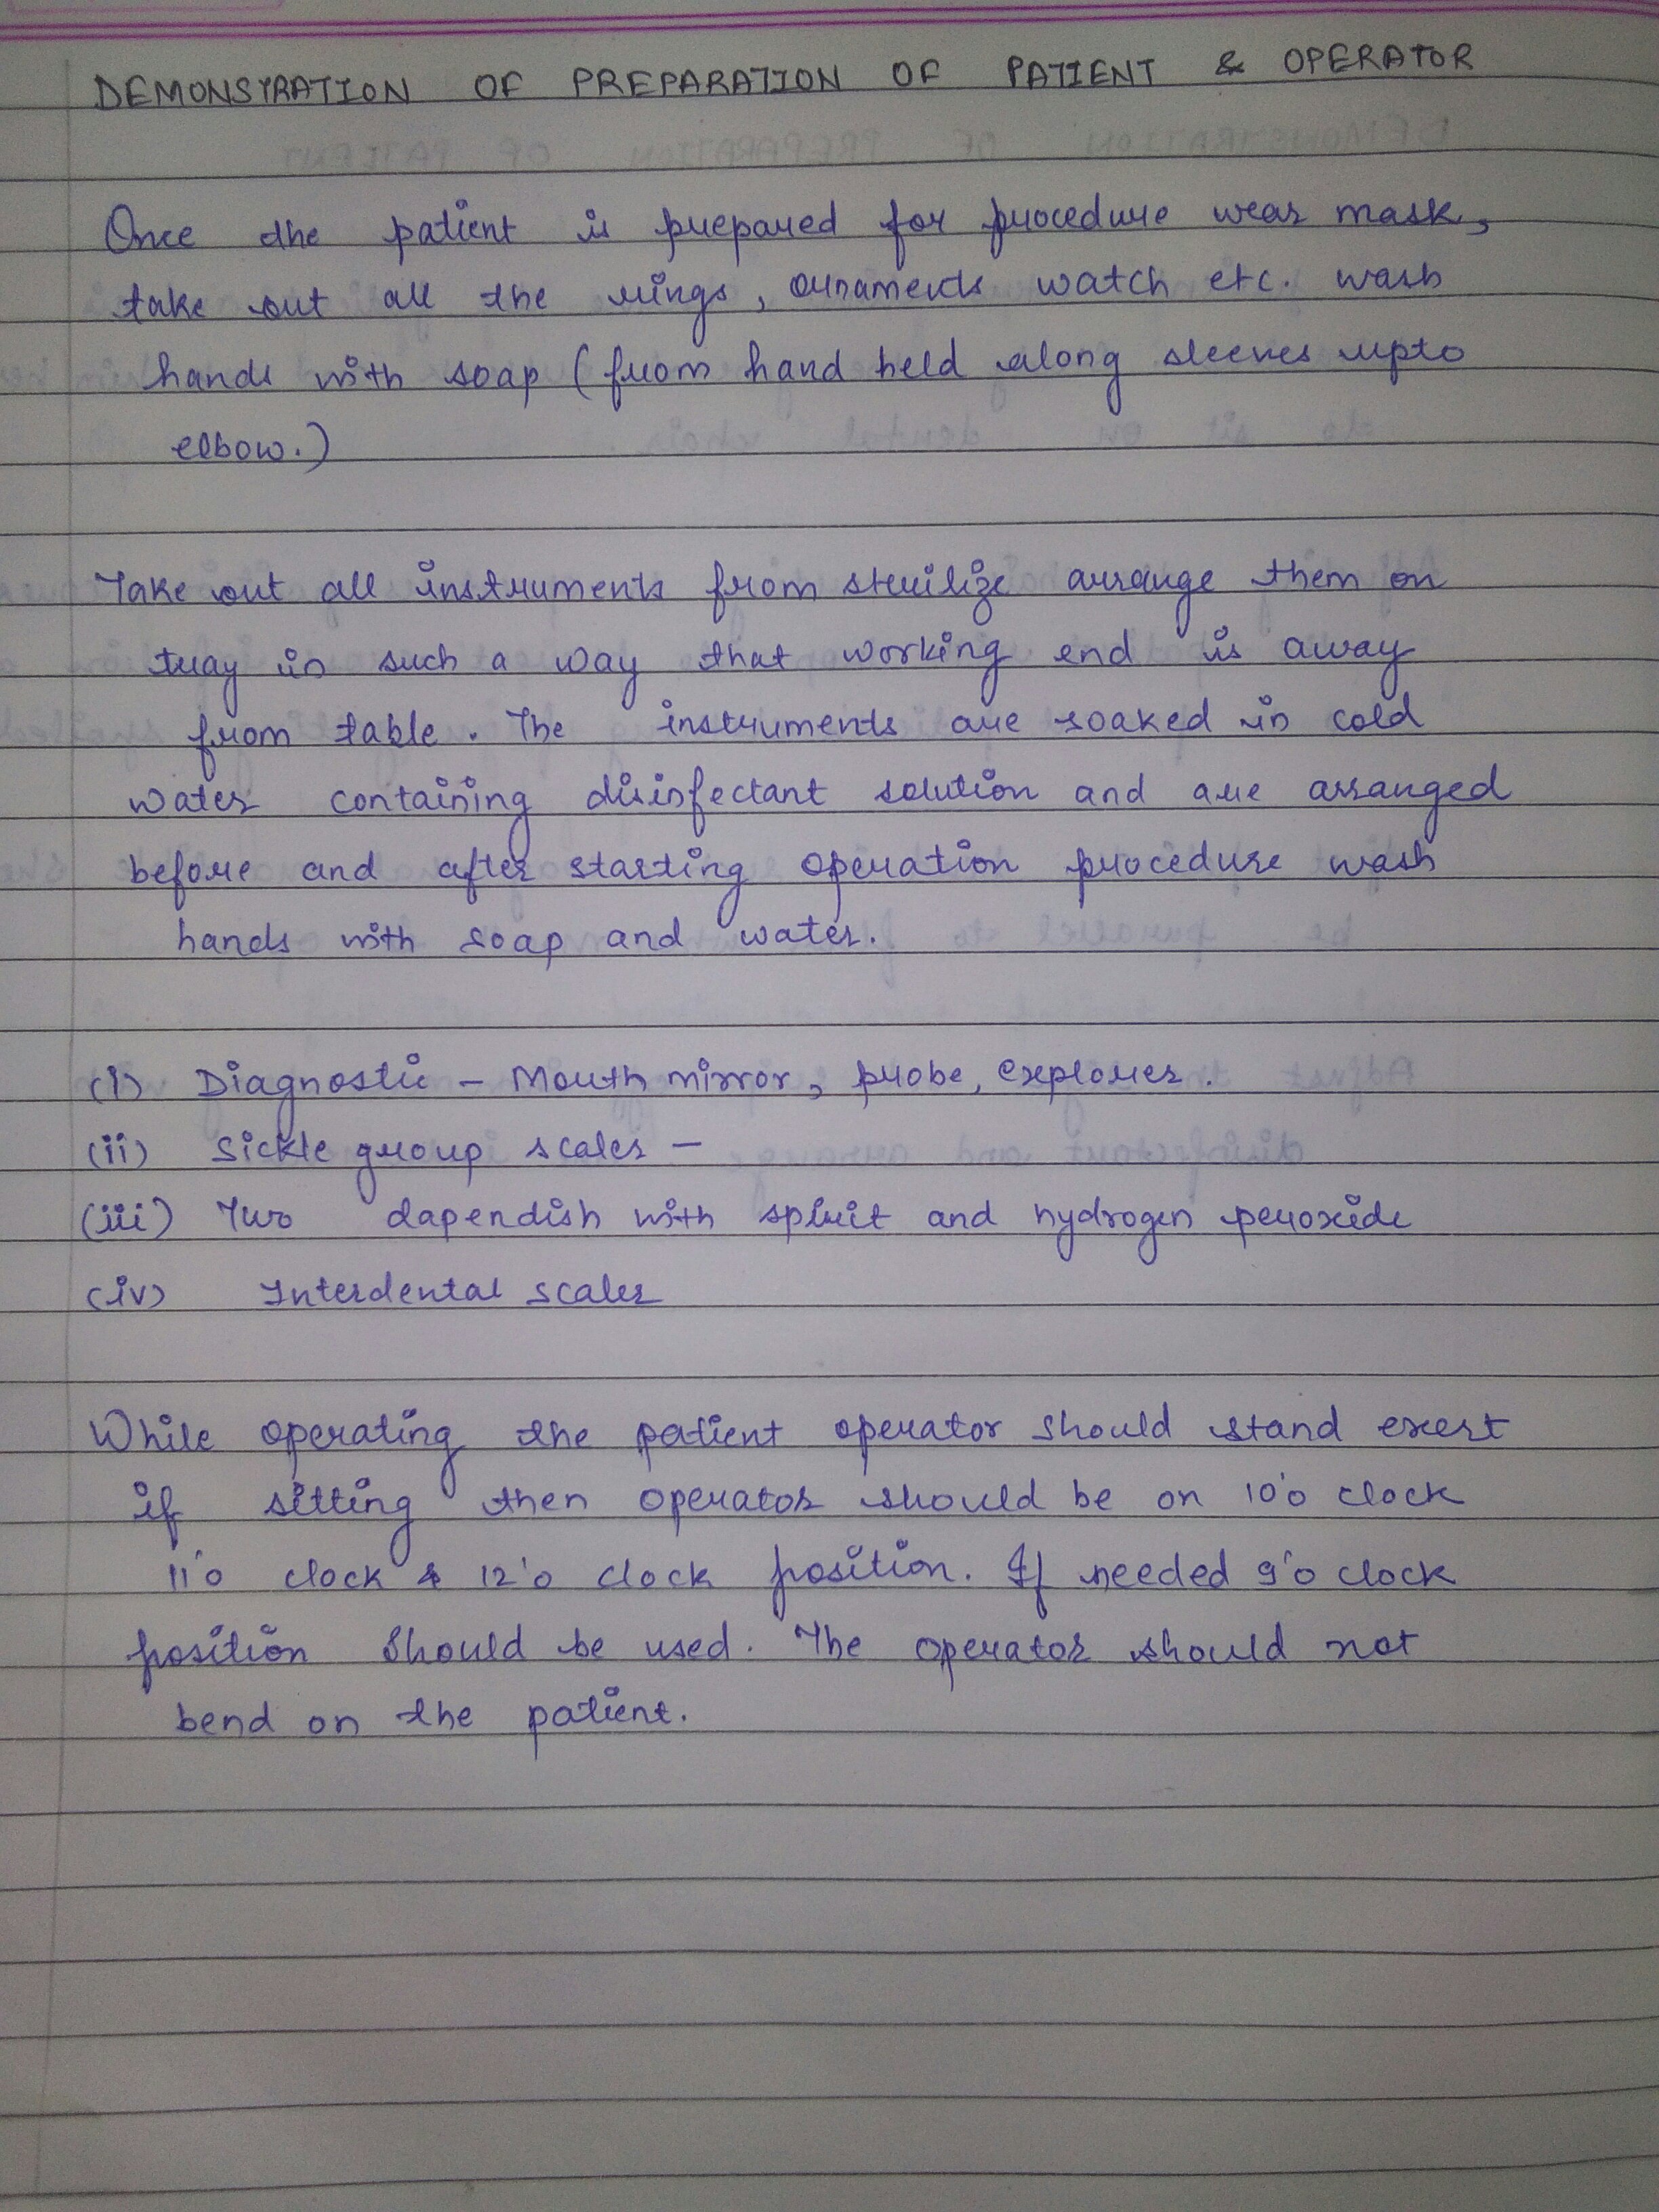 DEMONSTRATION OF PREPARATION OF PATIENT & OPERATOR
Once the patient is prepared for procedure wear mask,
take out all the rings, ornaments watch etc. wash
hands with soap (from hand held along sleeves upto
elbow.)
Take out all instruments from sterilize arrange them on
tray in such a way that working end is away
from table. The instruments are soaked in cold
water containing disinfectant solution and are arranged
before and after starting operation procedure wash
hands with soap and water.
(i) Diagnostic - Mouth mirror, probe, explorer.
(ii) Sickle group scaler -
(iii) Two dapendish with spirit and hydrogen peroxide
(iv) Interdental scaler
While operating the patient operator should stand exert
if sitting then operator should be on 10'o clock
11'o clock & 12'o clock position. If needed 9'o clock
position should be used. The operator should not
bend on the patient.